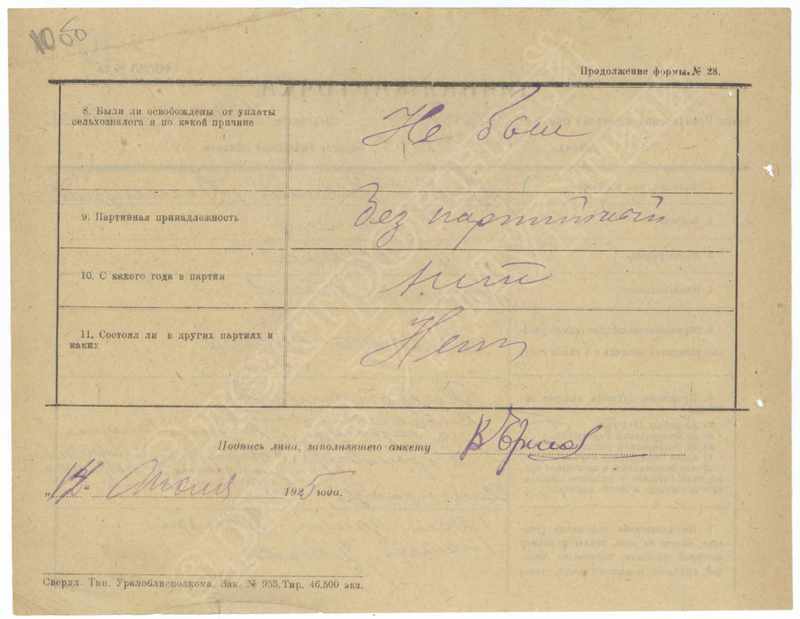 Продолжение формы № 28.
8. Были ли освобождены от уплаты
сельхозналога и по какой причине
Не был
9. Партийная принадлежность
Без партийный
10. С какого года в партии
нет
11. Состоял ли в других партиях и
каких
Нет
Подпись лица, заполнявшего анкету
1925 года.
Свердл. Тип. Уралоблисполкома. Зак. № 953, Тир. 46,500 экз.